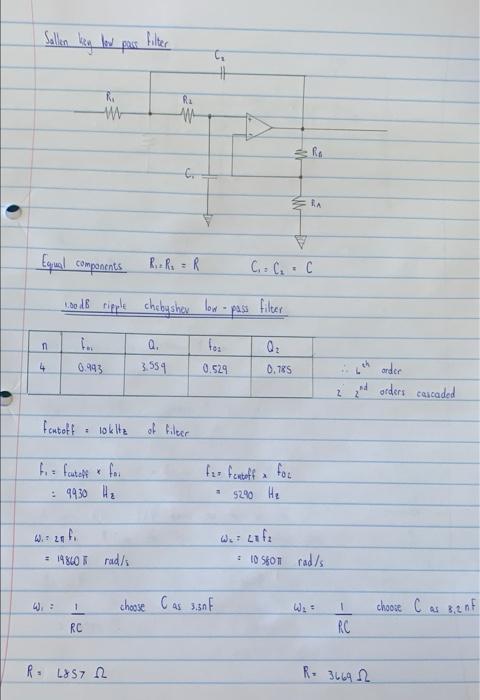 Sallen key low pass filter
C₂
R₁
R₂
+
-
C₁
R_B
R_A
Equal components R₁=R₂ = R C₁ = C₂ = C
1.00 dB ripple chebyshev low-pass filter
n f₀₁ Q₁ f₀₂ Q₂
4 0.993 3.559 0.529 0.785
∴ 4th order
2 2nd orders cascaded
fcutoff = 10kHz of filter
f₁ = fcutoff × f₀₁ f₂ = fcutoff × f₀₂
= 9930 Hz = 5290 Hz
ω₁ = 2π f₁ ω₂ = 2π f₂
= 19860 π rad/s = 10580π rad/s
ω₁ = 1/RC choose C as 3.3nF ω₂ = 1/RC choose C as 8.2 nF
R = 4857 Ω R = 3669 Ω